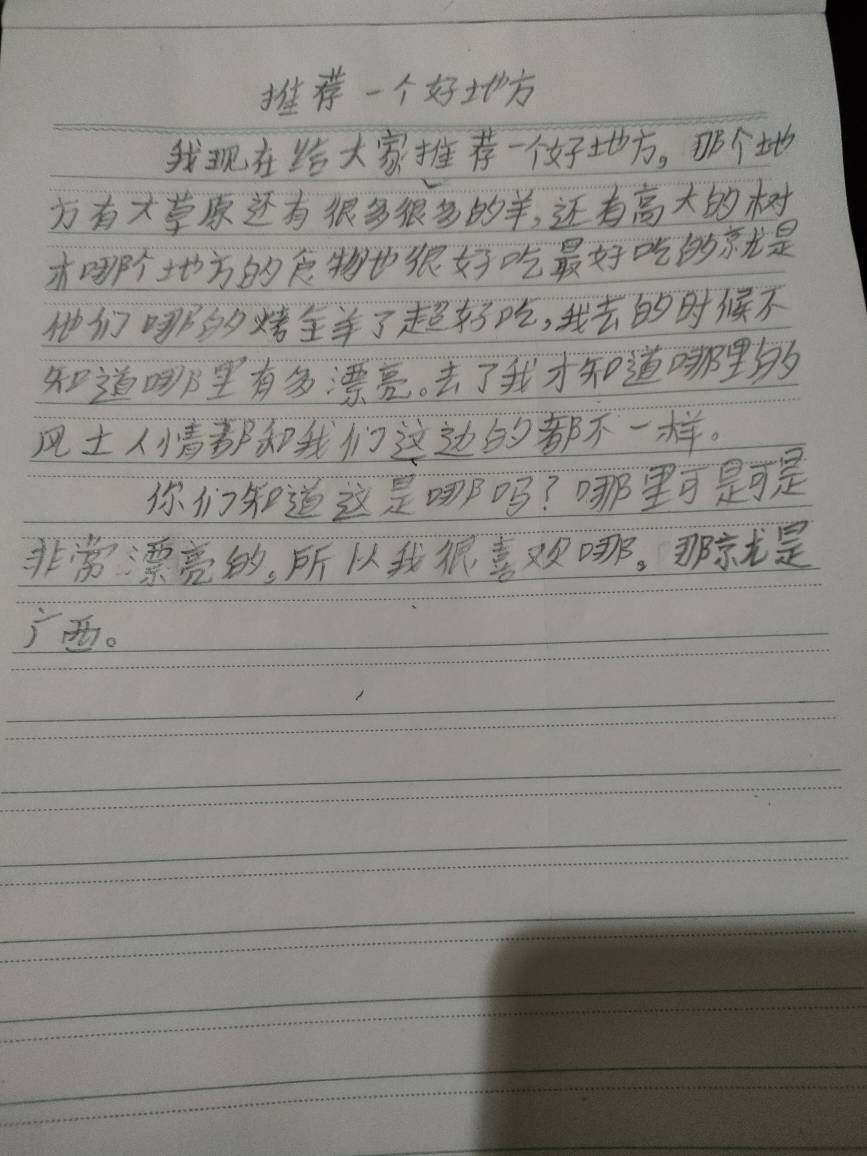 推荐一个好地方
我现在给大家推荐一个好地方。那个地
方有大草原还有很多很多的羊,还有高大的树
木哪个地方的食物也很好吃最好吃的就是
他们哪的烤全羊了超好吃,我去的时候不
知道哪里有多漂亮。去了我才知道哪里的
风土人情都和我们这边的都不一样。
你们知道这是哪吗?哪里可是可是
非常漂亮的。所以我很喜欢哪。那就是
广西。